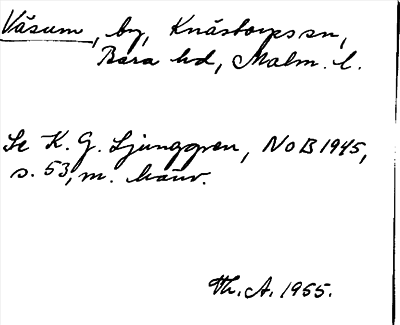 Väsum, by, Knästorps sn,
Bara hd, Malm. l.
Se K. G. Ljunggren, NoB 1945,
s. 53, m. hänv.
Th. A. 1955.